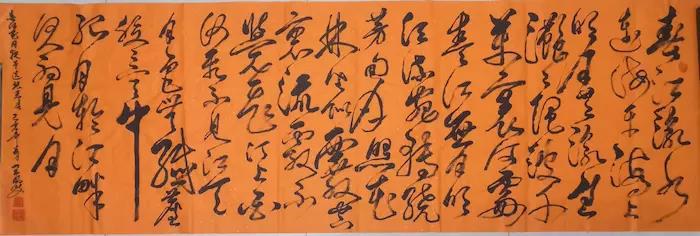 春江潮水
連海平海上
明月共潮生
灩〻隨波千
萬里何處
春江無月明
江流宛轉繞
芳甸月照花
林皆似霰空
裏流霜不
覺飛汀上白
沙看不見江天
一色無纖塵
皎〻空中
孤月輪江畔
何人初見月